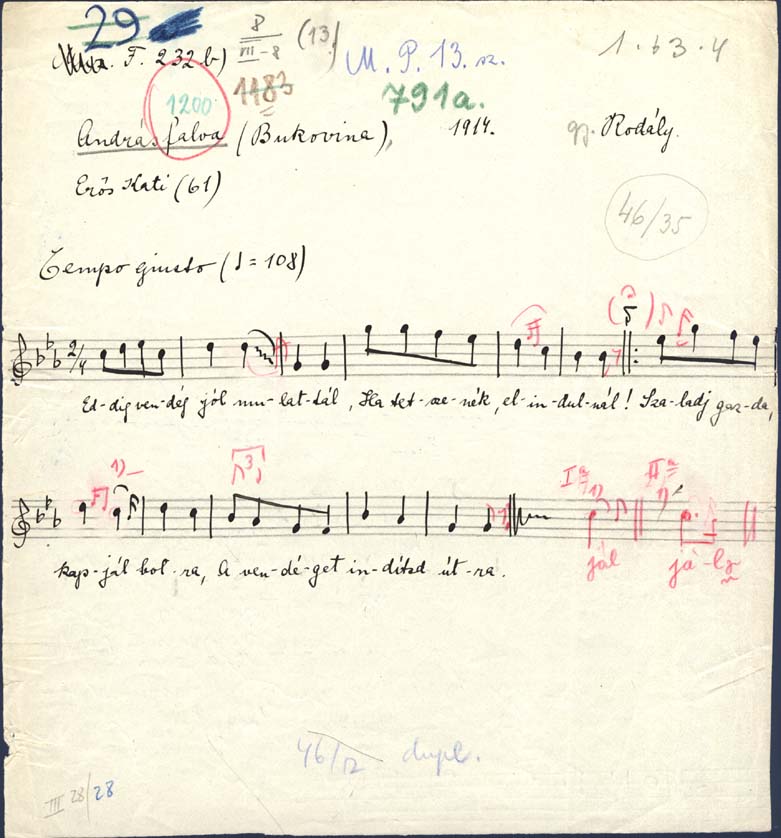 29
8
VII-8
(13)
F. 232 b)
M. P. 13. sz.
1 . b3 . 4
1200
1183
791a.
Andrásfalva (Bukovina), 1914. gy. Kodály.
Erős Kati (61)
46/35
Tempo giusto (♩ = 108)
2/4
Ed-dig ven-dég jól mu-lat-tál, Ha tet-sze-nék, el-in-dul-nál! Sza-ladj gaz-da,
1)
3
I a 1)
II a
kap-jál bot-ra, A ven-dé-get in-dítsd út-ra.
jál
já-l
46/12 dupl.
III 28/28